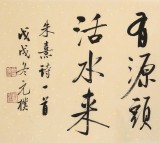 有源頭
活水来
朱熹诗一首
戊戌冬元